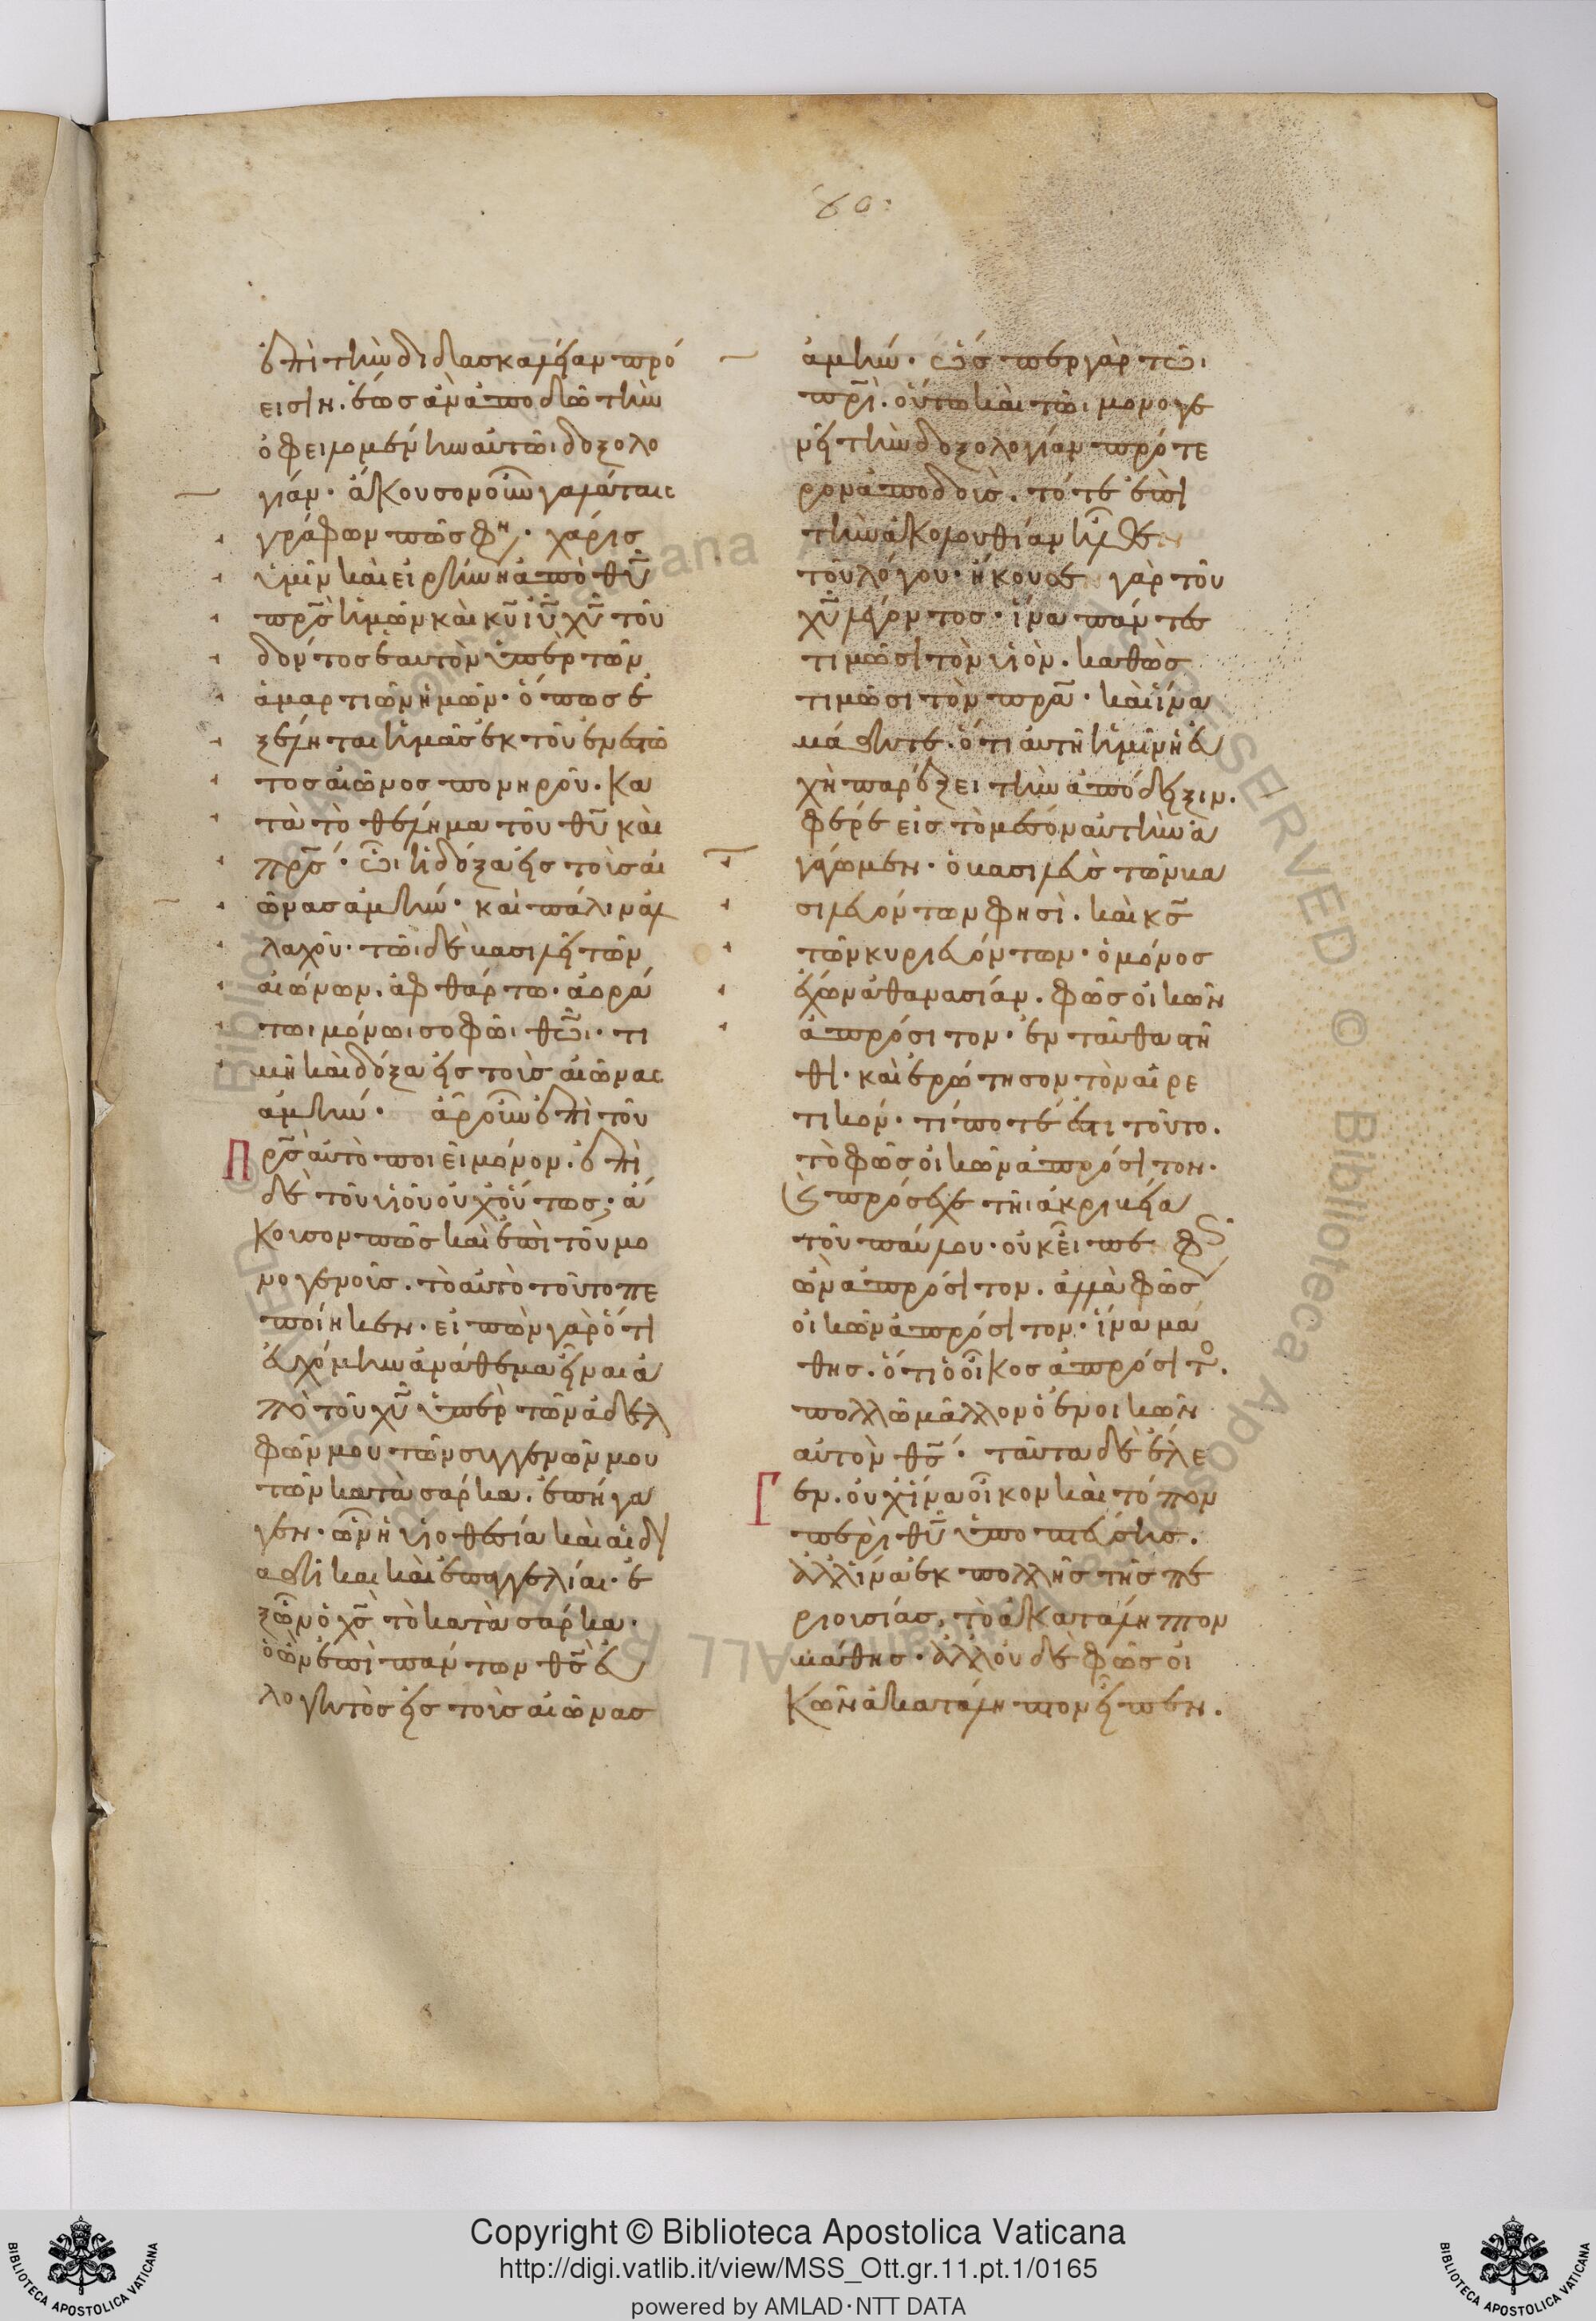 60.
ἐπὶ τὴν διδασκαλείαν πρό
εισιν. ἕως ἂν ἀποδῶ τὴν
ὀφειλομένην αὐτῶι δοξολο
γίαν. ἄκουσον οὖν γαλάταις
γράφων πῶς φη. χάρις
ὑμῖν καὶ εἰρήνη ἀπὸ θῦ
πρς ἡμῶν καὶ κυ ιυ χυ τοῦ
δόντος ἑαυτὸν ὑπὲρ τῶν
ἁμαρτιῶν ἡμῶν. ὅπως ἐ
ξέληται ἡμᾶς ἐκ τοῦ ἐνεστῶ
τος αἰῶνος πονηροῦ. κα
τὰ τὸ θέλημα τοῦ θυ καὶ
πρς. ὧι ἡ δόξα εἰς τοὺς αἰ
ῶνας ἀμήν. καὶ πάλιν ἀλ
λαχοῦ. τῶι δὲ βασιλεῖ τῶν
αἰώνων. ἀφθάρτω. ἀορά
τωι μόνωι σοφῶι θῶι. τι
μὴ καὶ δόξα εἰς τοὺς αἰῶνας
ἀμήν. ἆρ οὖν ἐπὶ τοῦ
Πρς αὐτὸ ποιεῖ μόνον. ἐπὶ
δὲ τοῦ υἱοῦ οὐχ οὕτως; ἄ
κουσον πῶς καὶ ἐπὶ τοῦ μο
νογενοῦς. τὸ αὐτὸ τοῦτο πε
ποίηκεν. εἰπὼν γὰρ ὅτι
εὐχόμην ἀνάθεμα εἶναι ἀ
πὸ τοῦ χυ ὑπὲρ τῶν ἀδελ
φῶν μου τῶν συγγενῶν μου
τῶν κατὰ σάρκα. ἐπήγα
γεν. ὧν ἡ υἱοθεσία καὶ αἱ δι
αθῆκαι καὶ ἐπαγγελίαι. ἐ
ξ ὧν ὁ χς τὸ κατὰ σάρκα.
ὁ ὢν ἐπὶ πάντων θς εὐ
λογητὸς εἰς τοὺς αἰῶνας
ἀμήν. ὥσπερ γὰρ τῶι
πρὶ. οὕτω καὶ τῶι μονογε
νεῖ τὴν δοξολογίαν πρότε
ρον ἀποδοὺς. τότε ἐπὶ
τὴν ἀκολουθίαν ἦλθε
τοῦ λόγου. ἤκουσε γὰρ τοῦ
χυ λέγοντος. ἵνα πάντες
τιμῶσι τὸν υἱὸν. καθὼς
τιμῶσι τὸν πρα. καὶ ἵνα
μάθητε. ὅτι αὐτὴ ἡμῖν ἡ εὐ
χὴ παρέξει τὴν ἀπόδειξιν.
φέρε εἰς τὸ μέσον αὐτὴν ἀ
γάγωμεν. ὁ βασιλεὺς τῶν βα
σιλευόντων φησὶ. καὶ κς
τῶν κυριευόντων. ὁ μόνος
ἔχων ἀθανασίαν. φῶς οἰκῶν
ἀπρόσιτον. ἐνταῦθα στῆ
θι. καὶ ἐρώτησον τὸν αἱρε
τικόν. τί ποτέ ἐστι τοῦτο.
τὸ φῶς οἰκῶν ἀπρόσιτον.
καὶ πρόσεχε τῆι ἀκριβεία
τοῦ παύλου. οὐκ εἶπε φῶς
ὢν ἀπρόσιτον. ἀλλὰ φῶς
οἰκῶν ἀπρόσιτον. ἵνα μά
θης. ὅτι ὁ οἶκος ἀπρόσιτο.
πολλῶ μᾶλλον ὁ ἐνοικῶν
αὐτὸν θς. ταῦτα δὲ ἔλε
Γεν. οὐχ ἵνα οἶκον καὶ τόπον
περὶ θυ ὑποπτεύσης.
ἀλλ ἵνα ἐκ πολλῆς τῆς πε
ριουσίας, τὸ ἀκατάληπτον
μάθης. ἀλλ οὐδὲ φῶς οἰ
κῶν ἀκατάληπτον εἶπεν.
Copyright © Biblioteca Apostolica Vaticana
http://digi.vatlib.it/view/MSS_Ott.gr.11.pt.1/0165
powered by AMLAD·NTT DATA
BIBLIOTECA APOSTOLICA VATICANA
BIBLIOTECA APOSTOLICA VATICANA